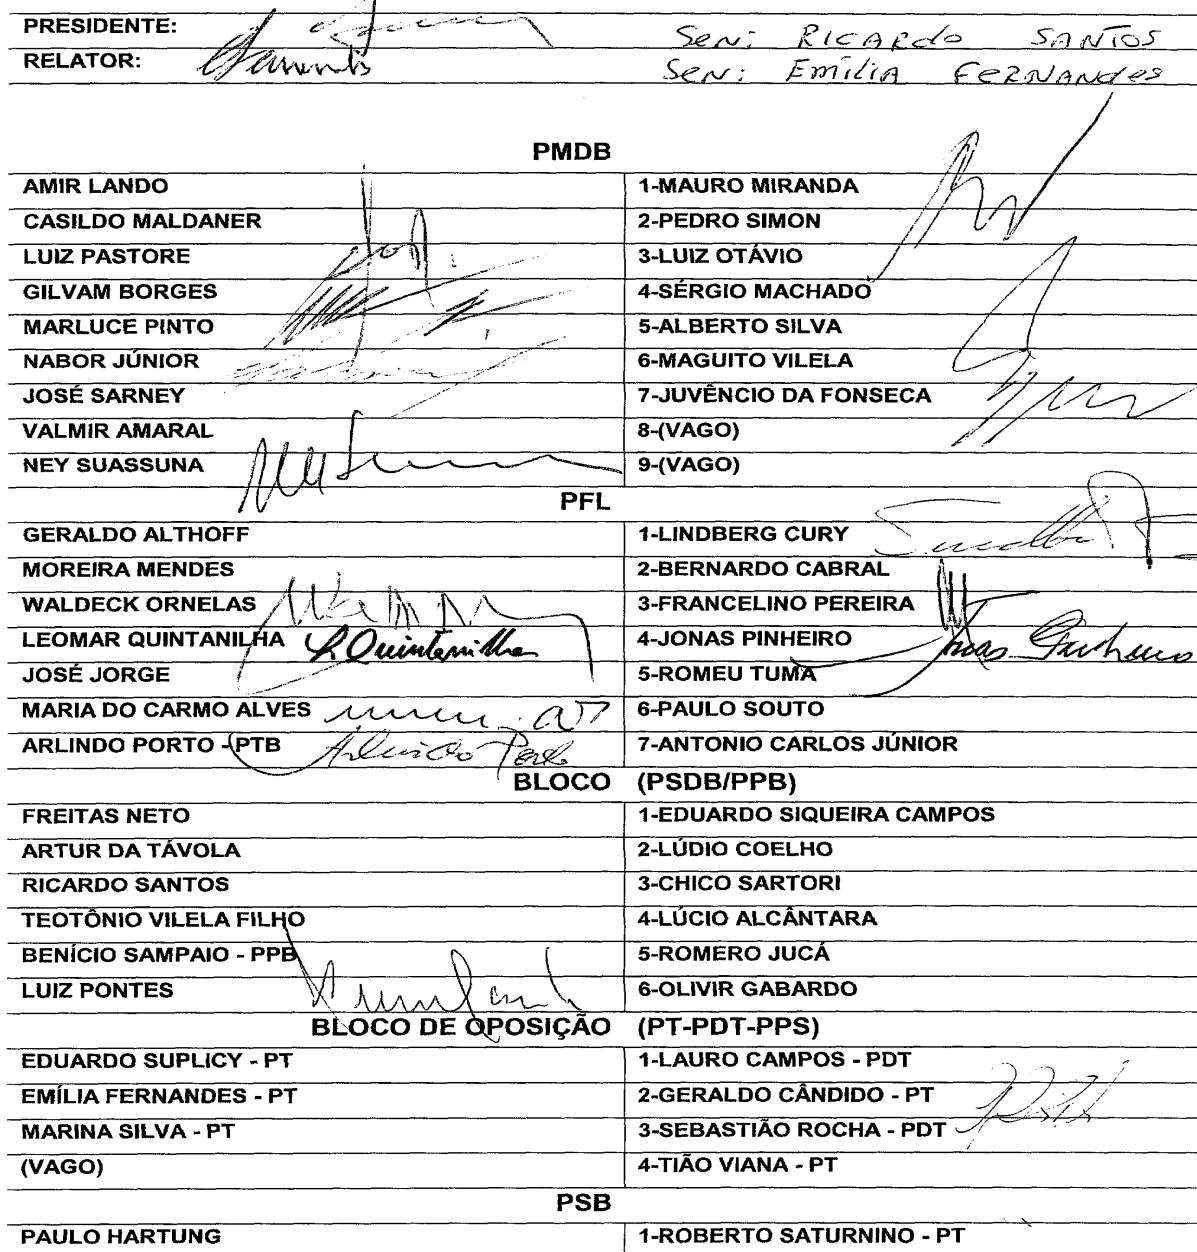 PRESIDENTE: Sen: RICARDO SANTOS
RELATOR: Sen: Emília FERNANDES
PMDB
AMIR LANDO 1-MAURO MIRANDA
CASILDO MALDANER 2-PEDRO SIMON
LUIZ PASTORE 3-LUIZ OTÁVIO
GILVAM BORGES 4-SÉRGIO MACHADO
MARLUCE PINTO 5-ALBERTO SILVA
NABOR JÚNIOR 6-MAGUITO VILELA
JOSÉ SARNEY 7-JUVÊNCIO DA FONSECA
VALMIR AMARAL 8-(VAGO)
NEY SUASSUNA 9-(VAGO)
PFL
GERALDO ALTHOFF 1-LINDBERG CURY
MOREIRA MENDES 2-BERNARDO CABRAL
WALDECK ORNELAS 3-FRANCELINO PEREIRA
LEOMAR QUINTANILHA L Quintanilha 4-JONAS PINHEIRO Jonas Pinheiro
JOSÉ JORGE 5-ROMEU TUMA
MARIA DO CARMO ALVES 6-PAULO SOUTO
ARLINDO PORTO - PTB Arlindo Porto 7-ANTONIO CARLOS JÚNIOR
BLOCO (PSDB/PPB)
FREITAS NETO 1-EDUARDO SIQUEIRA CAMPOS
ARTUR DA TÁVOLA 2-LÚDIO COELHO
RICARDO SANTOS 3-CHICO SARTORI
TEOTÔNIO VILELA FILHO 4-LÚCIO ALCÂNTARA
BENÍCIO SAMPAIO - PPB 5-ROMERO JUCÁ
LUIZ PONTES 6-OLIVIR GABARDO
BLOCO DE OPOSIÇÃO (PT-PDT-PPS)
EDUARDO SUPLICY - PT 1-LAURO CAMPOS - PDT
EMÍLIA FERNANDES - PT 2-GERALDO CÂNDIDO - PT
MARINA SILVA - PT 3-SEBASTIÃO ROCHA - PDT
(VAGO) 4-TIÃO VIANA - PT
PSB
PAULO HARTUNG 1-ROBERTO SATURNINO - PT